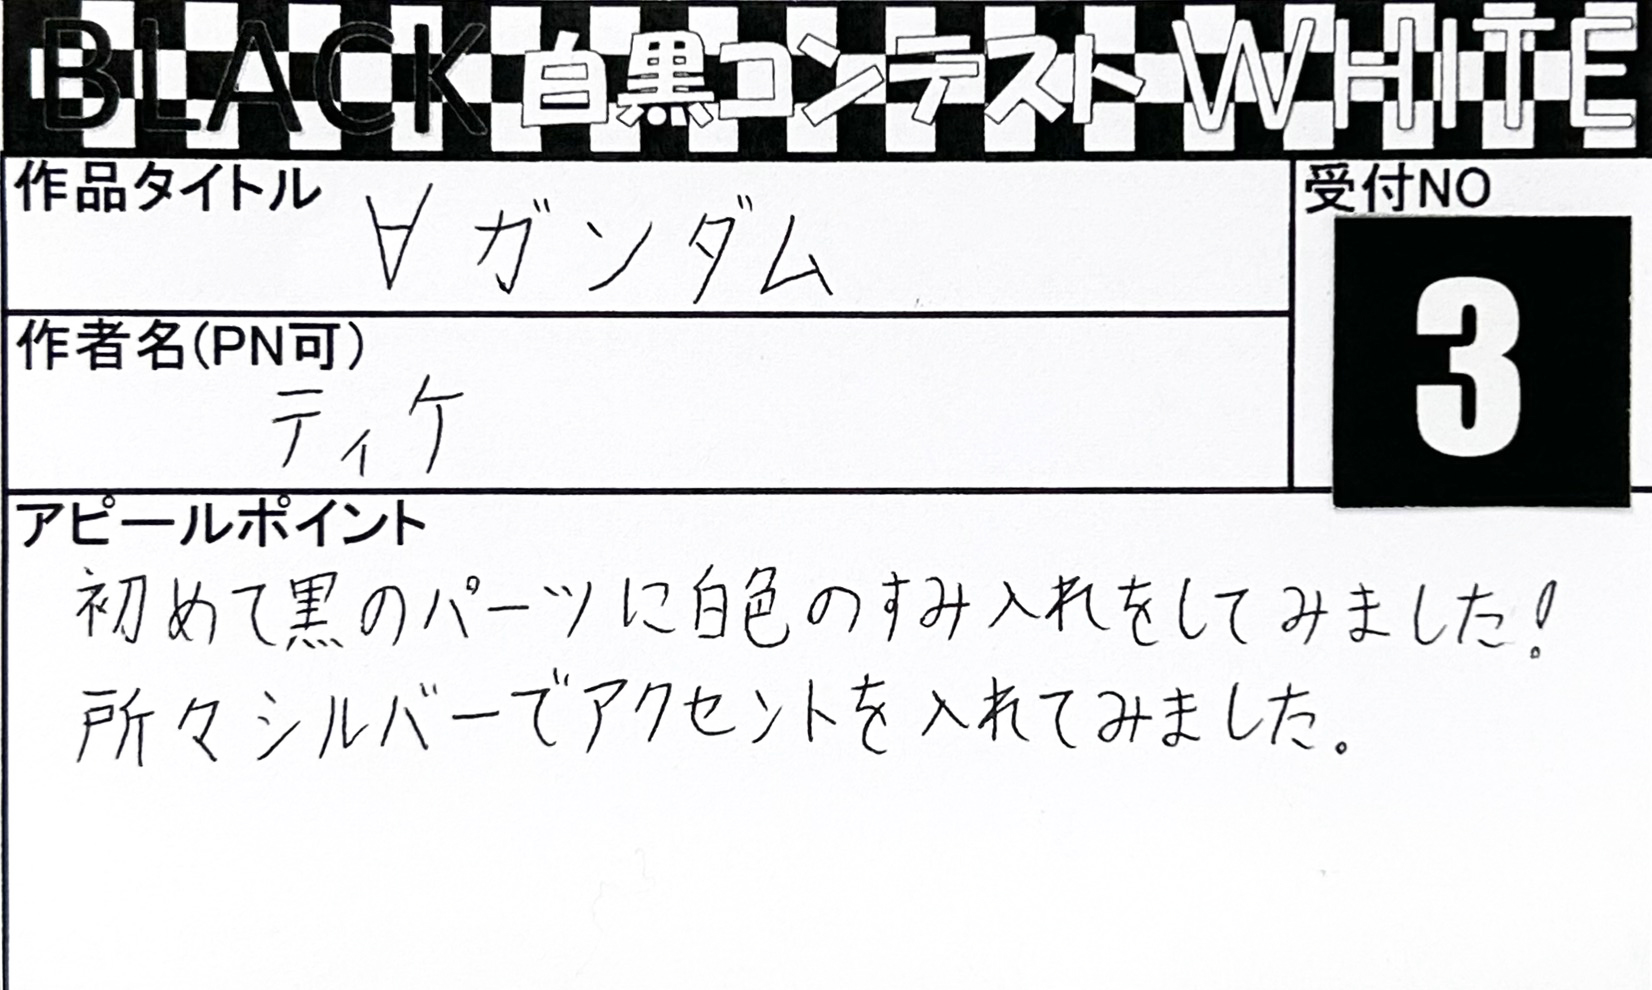 BLACK 白黒コンテスト WHITE
作品タイトル
∀ガンダム
受付NO
3
作者名(PN可)
ティケ
アピールポイント
初めて黒のパーツに白色のすみ入れをしてみました!
所々シルバーでアクセントを入れてみました。